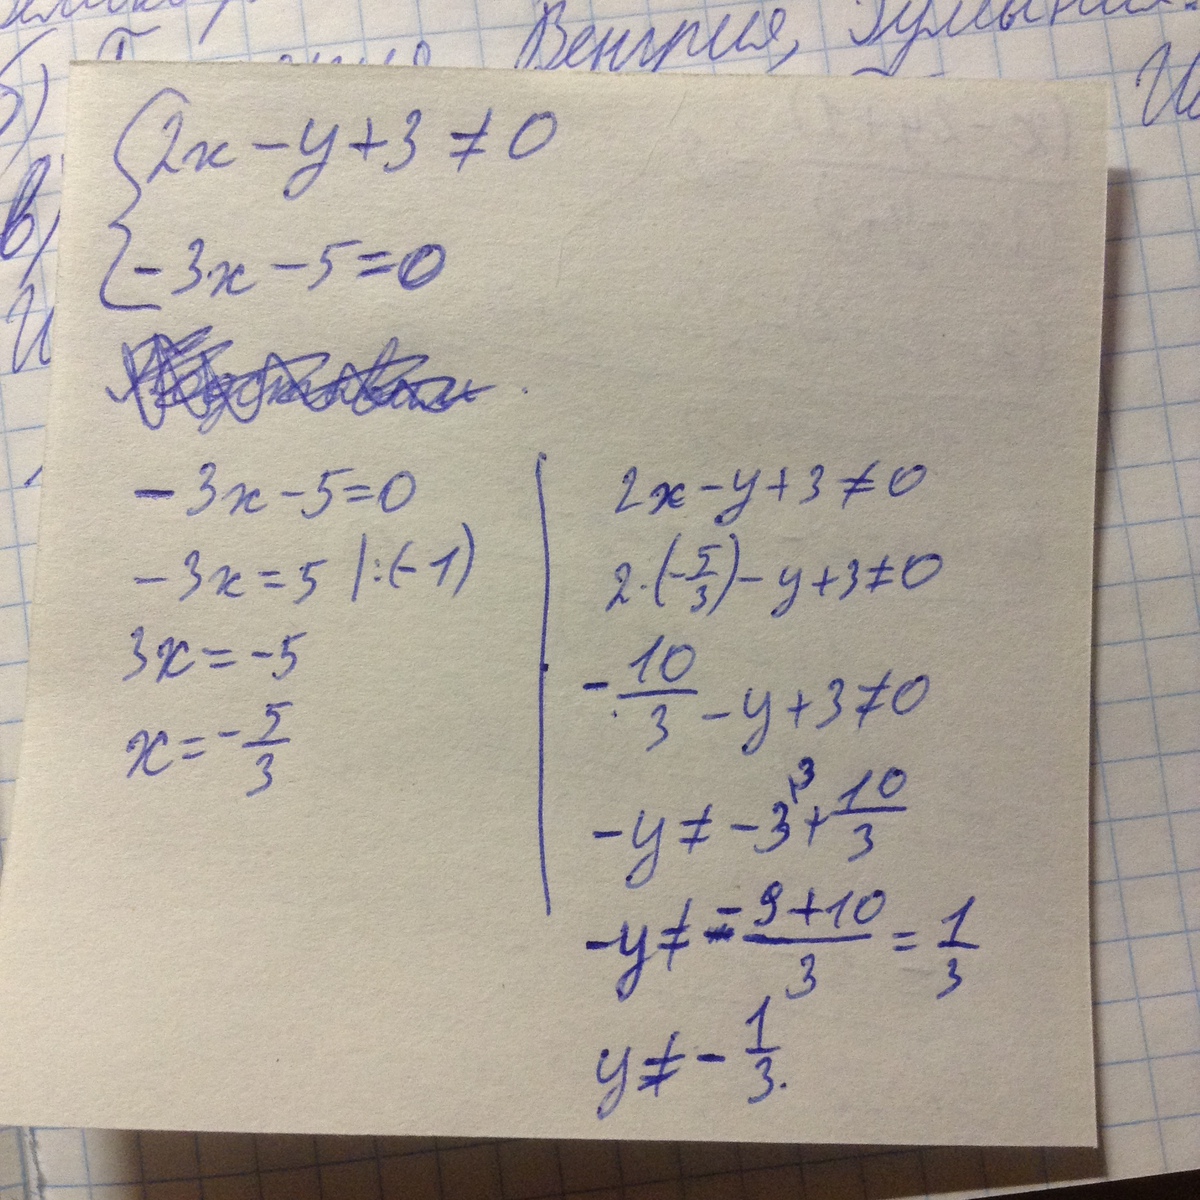 б) Венгрия,
в)
2x - y + 3 ≠ 0
-3x - 5 = 0
-3x - 5 = 0
-3x = 5 |:(-1)
3x = -5
x = -5/3
2x - y + 3 ≠ 0
2·(-5/3) - y + 3 ≠ 0
-10/3 - y + 3 ≠ 0
-y ≠ -3³ + 10/3
-y ≠ (-9+10)/3 = 1/3
y ≠ -1/3.